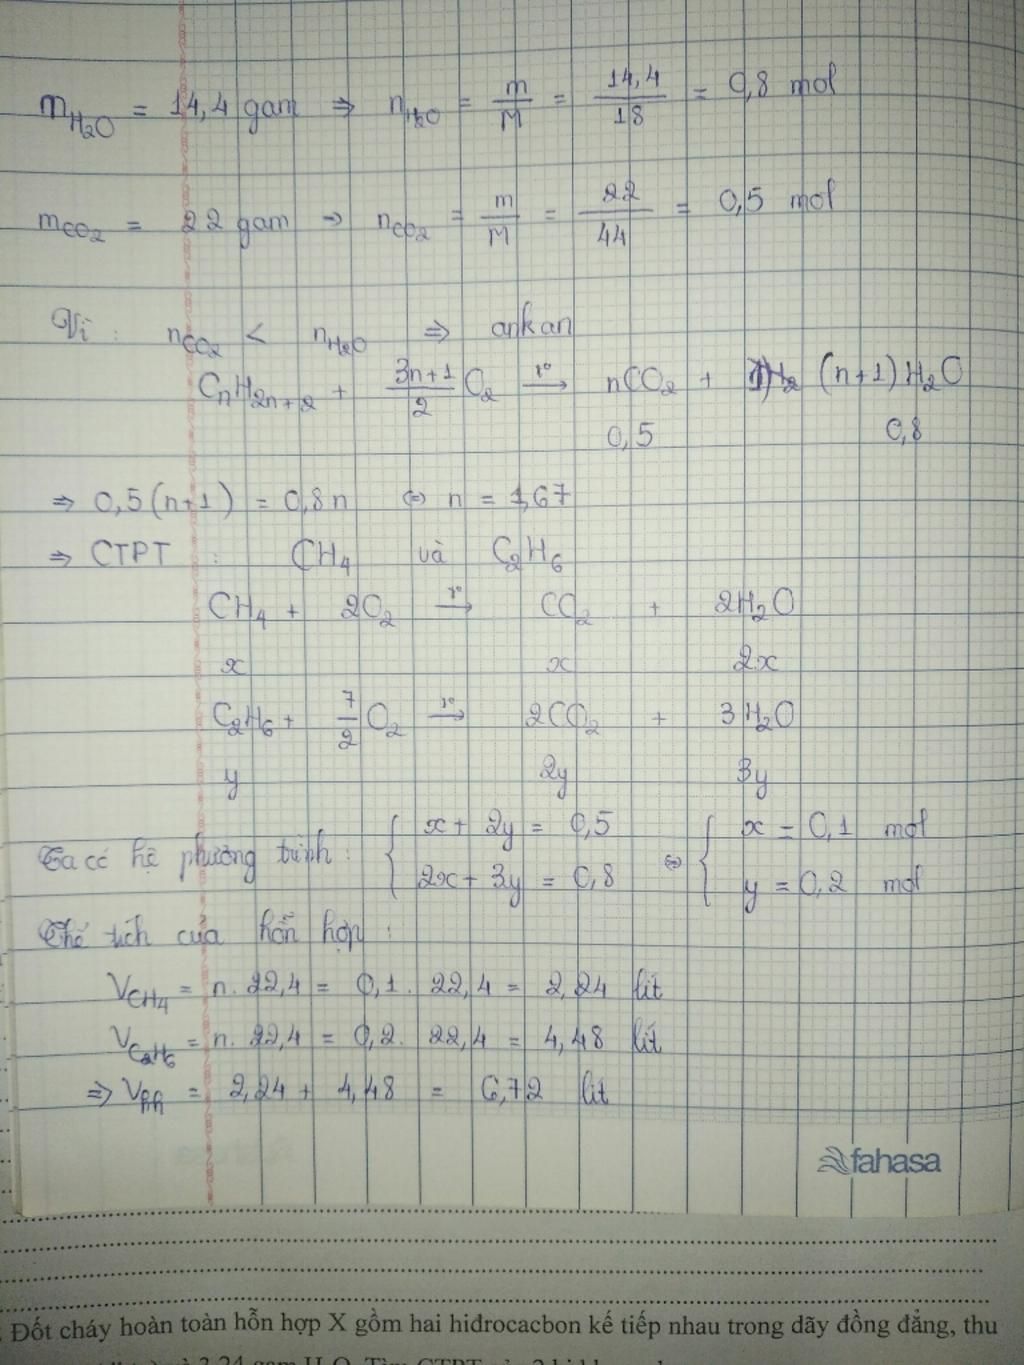 m_H₂O = 14,4 gam ⇒ n_H₂O = m/M = 14,4/18 = 0,8 mol
m_CO₂ = 22 gam → n_CO₂ = m/M = 22/44 = 0,5 mol
Vì: n_CO₂ < n_H₂O ⇒ ankan
CₙH₂ₙ₊₂ + (3n+1)/2 O₂ —t°→ nCO₂ + (n+1)H₂O
0,5 0,8
⇒ 0,5(n+1) = 0,8n ⇔ n = 1,67
⇒ CTPT : CH₄ và C₂H₆
CH₄ + 2O₂ —t°→ CO₂ + 2H₂O
x x 2x
C₂H₆ + 7/2 O₂ —t°→ 2CO₂ + 3H₂O
y 2y 3y
Ta có hệ phương trình: { x + 2y = 0,5 ⇔ { x = 0,1 mol
2x + 3y = 0,8 y = 0,2 mol
Thể tích của hỗn hợp:
V_CH₄ = n. 22,4 = 0,1. 22,4 = 2,24 lít
V_C₂H₆ = n. 22,4 = 0,2. 22,4 = 4,48 lít
⇒ V_hh = 2,24 + 4,48 = 6,72 lít
fahasa
Đốt cháy hoàn toàn hỗn hợp X gồm hai hiđrocacbon kế tiếp nhau trong dãy đồng đẳng, thu
3,24 gam H₂O. Tìm CTPT của 2